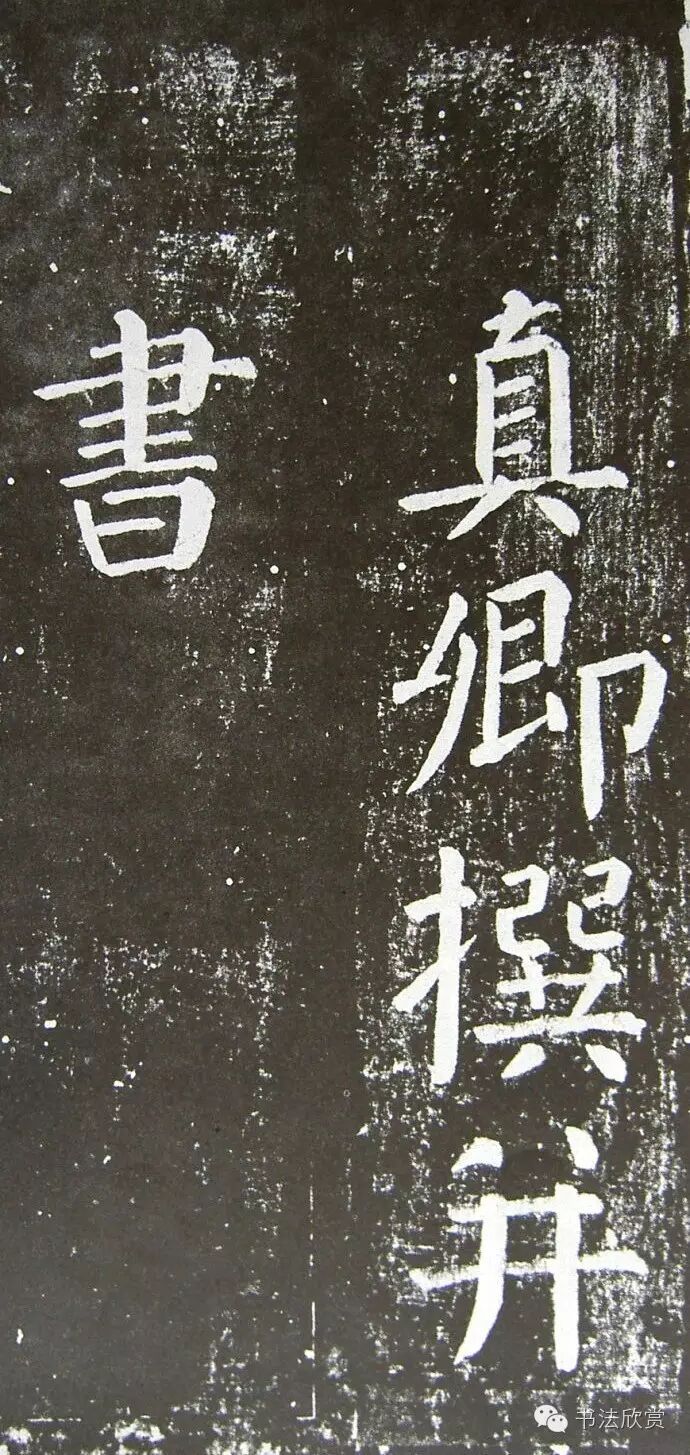 真卿撰并
書
书法欣赏